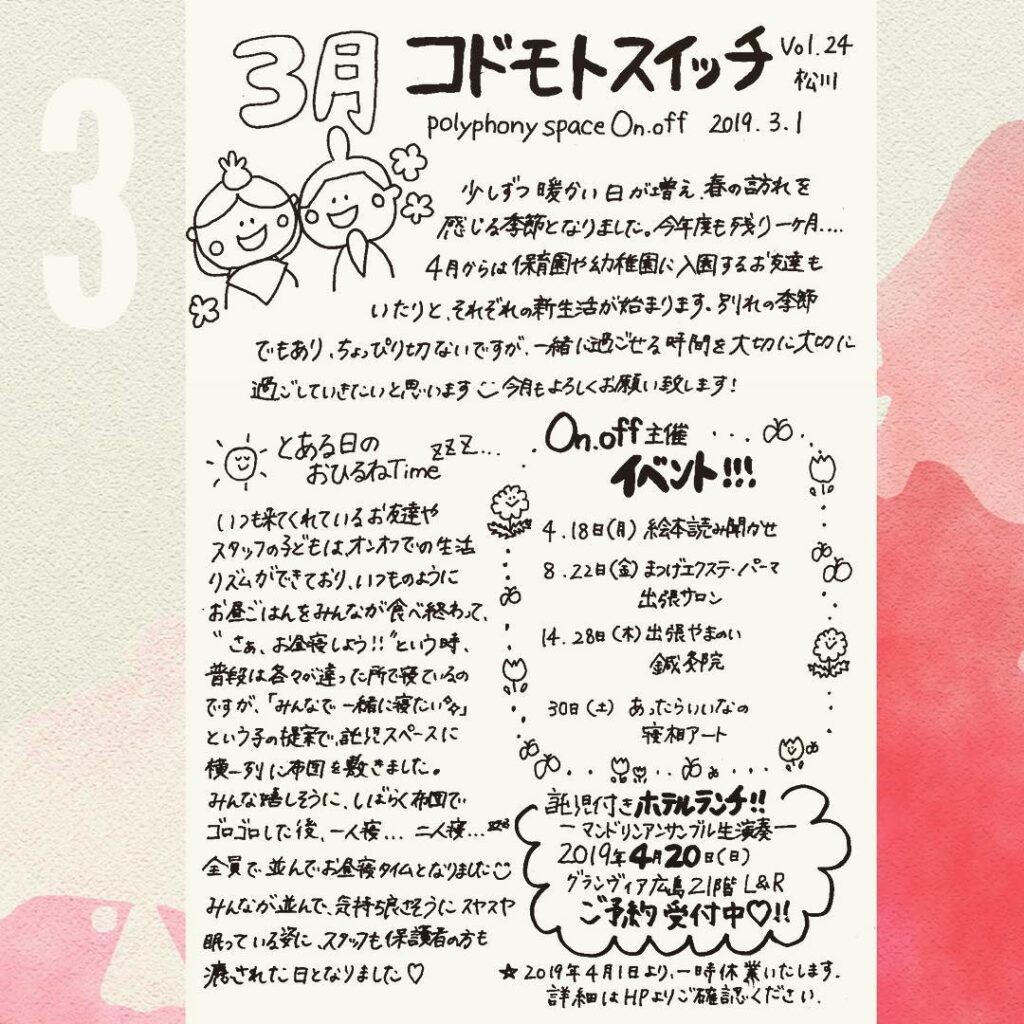 3
3月 コドモトスイッチ Vol.24
松川
polyphony space On.off 2019.3.1
少しずつ暖かい日が増え、春の訪れを
感じる季節となりました。今年度も残り一ヶ月....
4月からは保育園や幼稚園に入園するお友達も
いたりと、それぞれの新生活が始まります。別れの季節
でもあり、ちょっぴり切ないですが、一緒に過ごせる時間を大切に大切に
過ごしていきたいと思います 今月もよろしくお願い致します!
とある日の
おひるねTime zzz...
いつも来てくれているお友達や
スタッフの子どもは、オンオフでの生活
リズムができており、いつものように
お昼ごはんをみんなが食べ終わって、
"さぁ、お昼寝しよう!!"という時、
普段は各々が違った所で寝ているの
ですが、「みんなで一緒に寝たい」
という子の提案で、託児スペースに
横一列に布団を敷きました。
みんな嬉しそうに、しばらく布団で
ゴロゴロした後、一人寝... 二人寝...zzz
全員で並んでお昼寝タイムとなりました
みんなが並んで、気持ち良さそうにスヤスヤ
眠っている姿に、スタッフも保護者の方も
癒された日となりました♡
On.off主催
イベント!!!
4.18日(月) 絵本読み聞かせ
8.22日(金) まつげエクステ・パーマ
出張サロン
14.28日(木) 出張やまのい
鍼灸院
30日(土) あったらいいなの
寝相アート
託児付きホテルランチ!!
ーマンドリンアンサンブル生演奏ー
2019年4月20日(日)
グランヴィア広島21階 L&R
ご予約受付中♡!!
★2019年4月1日より、一時休業いたします。
詳細はHPよりご確認ください。